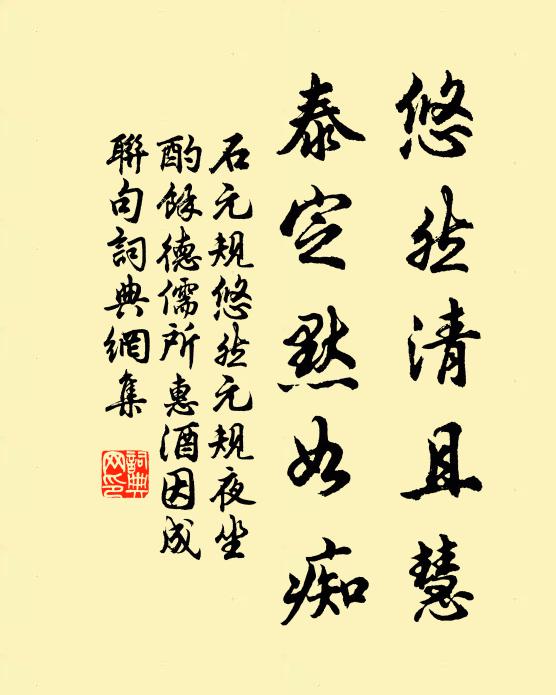 悠然清且慧
泰定默如痴
石元規悠然元規夜坐
酌餘德儒所惠酒因成
聯句詞典網集
詞典网印